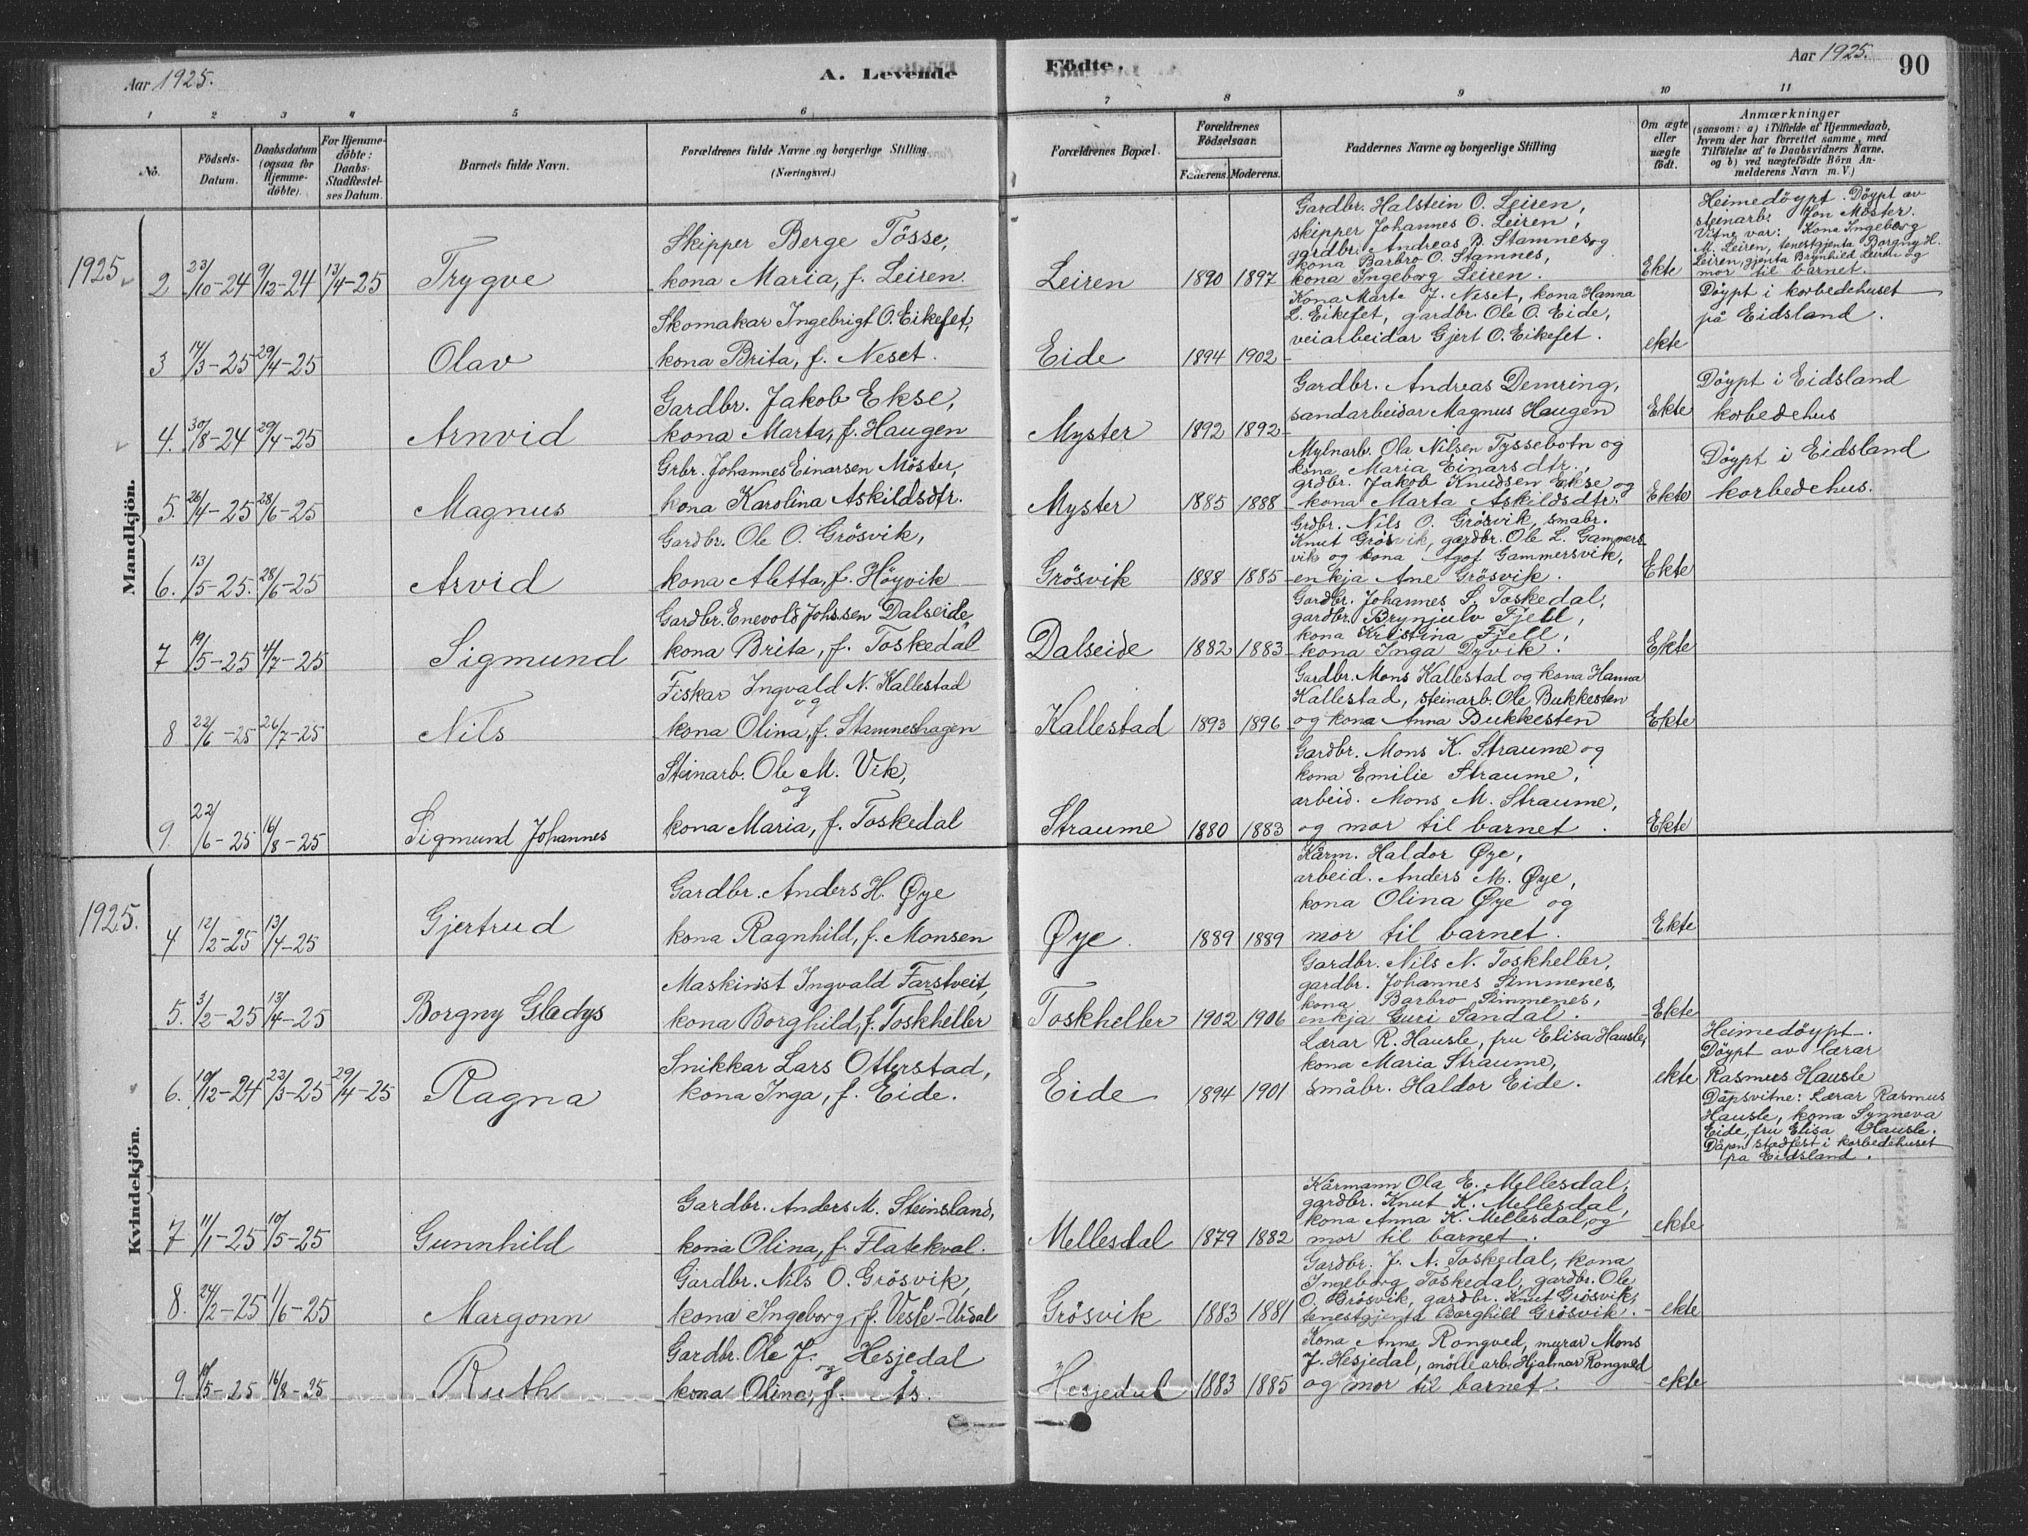 Aar 1925. A. Levende Födte. Aar 1925. 90
1 2 3 4 5 6 7 8 9 10 11
No.
Födsels-
Datum.
Daabsdatum
(ogsaa for
Hjemme-
döbte).
For Hjemme-
döbte:
Daabs-
Stadfæstel-
ses Datum.
Barnets fulde Navn.
Forældrenes fulde Navne og borgerlige Stilling.
(Næringsvei.)
Forældrenes Bopæl.
Forældrenes
Födselsaar.
Faderens. Moderens.
Faddernes Navne og borgerlige Stilling
Om ægte
eller
uægte
født.
Anmærkninger
(saasom: a) i Tilfælde af Hjemmedaab,
hvem der har forrettet samme, med
Tilföielse af to Daabsvidners Navne,
og b) ved uægtefödte Börn An-
melderens Navn m. V.)
Mandkjön.
1925
2 23/10-24 9/12-24 13/4-25 Trygve
Skipper Berge Tösse,
kona Maria, f. Leiren.
Leiren 1890 1897
Gardbr. Halstein O. Leiren,
skipper Johannes O. Leiren,
gardbr. Andreas B. Stamnes og
kona Barbro O. Stamnes,
kona Ingeborg Leiren.
Ekte
Heimedöypt. Döypt av
steinarb. Jon Möster.
Vitne var: Kona Ingeborg
M. Leiren, tenestgjenta Borgny H.
Leiren, gjenta Brynhild Leiren og
mor til barnet.
3 14/3-25 29/4-25 Olav
Skomakar Ingebrigt O. Eikefet,
kona Brita, f. Neset.
Eide 1894 1902
Kona Marte J. Neset, kona Hanna
L. Eikefet, gardbr. Ole O. Eide,
veiarbeidar Gjert O. Eikefet.
ekte
Döypt i korbedehuset
på Eidsland.
4. 30/8-24 29/4-25 Arnvid
Gardbr. Jakob Ekse,
kona Marta, f. Haugen
Myster 1892 1892
Gardbr. Andreas Demring,
sandarbeidar Magnus Haugen
Ekte
Döypt i Eidsland
korbedehus
5. 26/4-25 28/6-25 Magnus
Grbr. Johannes Einarsen Möster,
kona Karolina Askildsdtr.
Myster 1885 1888
Mylnarb. Ola Nilsen Tyssebotn og
kona Maria Einarsdtr.,
grdbr. Jakob Knudsen Ekse og
kona Marta Askildsdtr.
Ekte
Döypt i Eidsland
korbedehus.
6. 13/5-25. 28/6-25 Arvid
Gardbr. Ole O. Grösvik,
kona Aletta, f. Höyvik
Grösvik 1888 1885
Grdbr. Nils O. Grösvik, smabr.
Knut Grösvik, gardbr. Ole L. Gammers-
vik og kona Agot Gammersvik,
enkja Ane Grösvik.
Ekte
7 19/5-25 4/7-25 Sigmund
Gardbr. Enevold Johssen Dalseide,
kona Brita, f. Toskedal
Dalseide 1882 1883
Gardbr. Johannes S. Toskedal,
gardbr. Brynjulv Fjell,
kona Kristina Fjell,
kona Inga Dyvik.
Ekte
8 22/6-25 26/7-25 Nils
Fiskar Ingvald N. Kallestad
og
kona Olina, f. Stamneshagen
Kallestad 1893 1896
Gardbr. Mons Kallestad og kona Hanna
Kallestad, steinarb. Ole Bukkesten
og kona Anna Bukkesten
Ekte
9. 22/6-25 16/8-25 Sigmund Johannes
Steinarb. Ole M. Vik,
og
kona Maria, f. Toskedal
Straume 1880 1883
Gardbr. Mons K. Straume og
kona Emilie Straume,
arbeid. Mons M. Straume,
og mor til barnet.
Ekte
Kvindekjön.
1925.
4 12/2-25 13/4-25 Gjertrud
Gardbr. Anders H. Øye
kona Ragnhild, f. Monsen
Øye. 1889 1889
Kårm. Haldor Øye,
arbeid. Anders M. Øye,
kona Olina Øye og
mor til barnet.
Ekte
5. 3/2-25 13/4-25 Borgny Gladys
Maskinist Ingvald Farstveit,
kona Borghild, f. Toskheller
Toskheller 1902 1906
Gardbr. Nils N. Toskheller,
gardbr. Johannes Simmenes,
kona Barbro Simmenes,
enkja Guri Sandal.
Ekte
6. 19/12-24 23/3-25 29/4-25 Ragna
Snikkar Lars Otterstad,
kona Inga, f. Eide.
Eide 1894 1901
Lærar R. Hausle, fru Elisa Hausle,
kona Maria Straume,
småbr. Haldor Eide.
ekte
Heimedöypt.
Döypt av lærar
Rasmus Hausle
Dåpsvitne: Lærar Rasmus
Hausle, kona Synneva
Eide, fru Elisa Hausle.
Dåpen stadfest i korbedehuset
på Eidsland.
7 11/1-25 10/5-25 Gunnhild
Gardbr. Anders M. Steinsland,
kona Olina, f. Flatekval.
Mellesdal 1879 1882
Kårmann Ola E. Mellesdal,
gardbr. Knut K. Mellesdal,
kona Anna K. Mellesdal, og
mor til barnet.
ekte
8. 24/2-25 1/6-25 Margonn
Gardbr. Nils O. Grösvik,
kona Ingeborg, f. Veste-Urdal
Grösvik 1883 1881
Gardbr. J. A. Toskedal, kona
Ingeborg Toskedal, gardbr. Ole
O. Grösvik, gardbr. Knut Grösvik,
tenestgjenta Borghild Grösvik.
ekte
9. 19/5-25 16/8-25 Ruth
Gardbr. Ole J. Hesjedal
og
kona Olina, f. Ås.
Hesjedal 1883 1885
Kona Anna Rongved, murar Mons
J. Hesjedal, möllearb. Hjalmar Rongved
og mor til barnet.
ekte